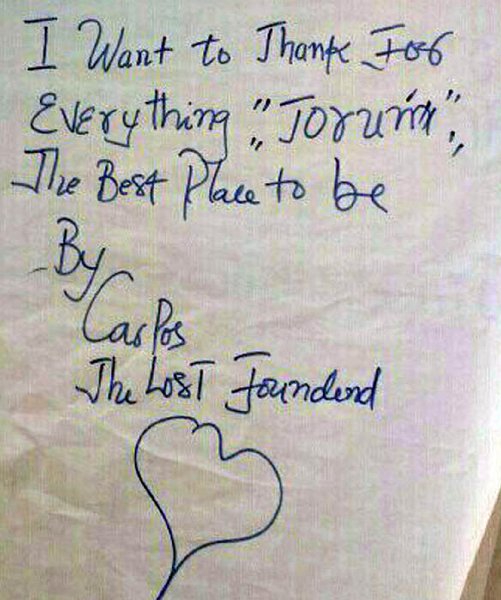 I Want to Thank For
Everything "Torum",
The Best Place to be
By
Carlos
The Lost Foundend